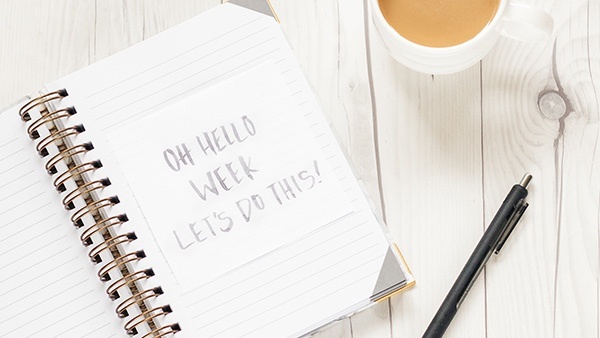 OH HELLO
WEEK
LET'S DO THIS!